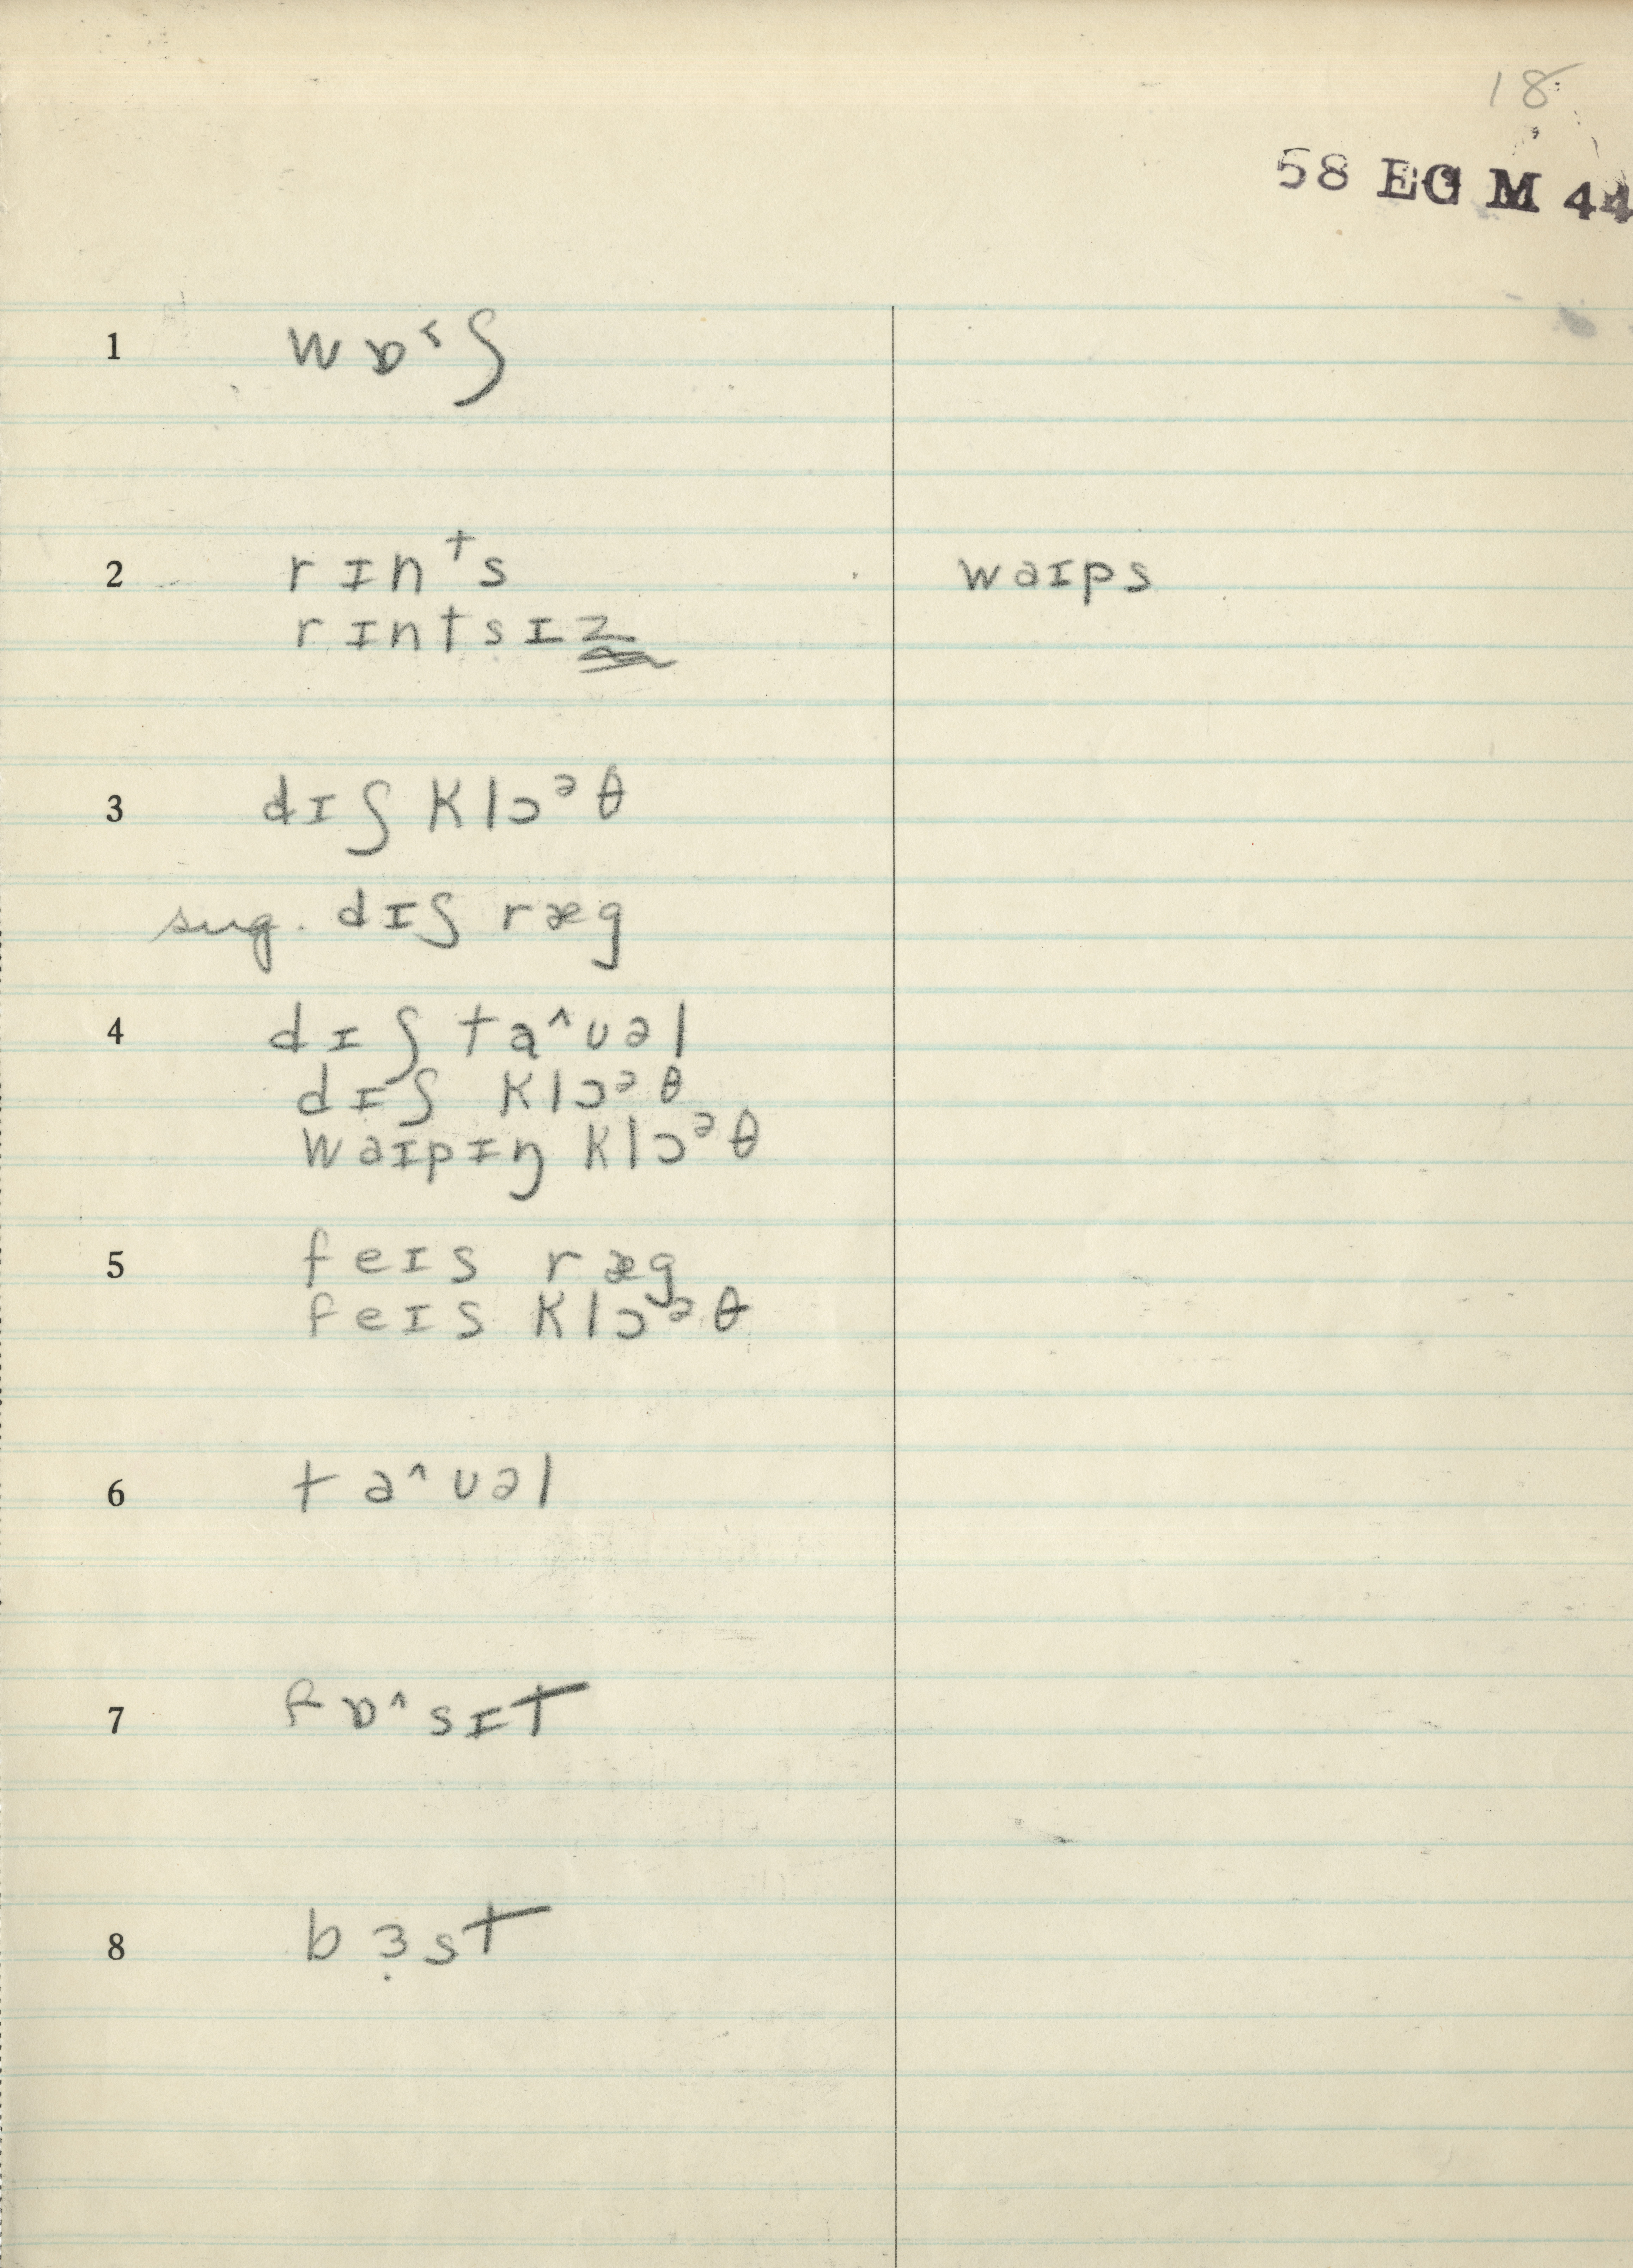 18
58 EG M 44
1 wɒ˂ʃ
2 rɪnᵗs waɪps
rɪntsɪz
3 dɪʃ klɔᵊθ
sug. dɪʃ ræg
4 dɪʃ ta^ʊəl
dɪʃ klɔᵊθ
waɪpɪŋ klɔᵊθ
5 feɪs ræg
feɪs klɔᵊθ
6 ta^ʊəl
7 fɒ^sɪt
8 bɜ̣st